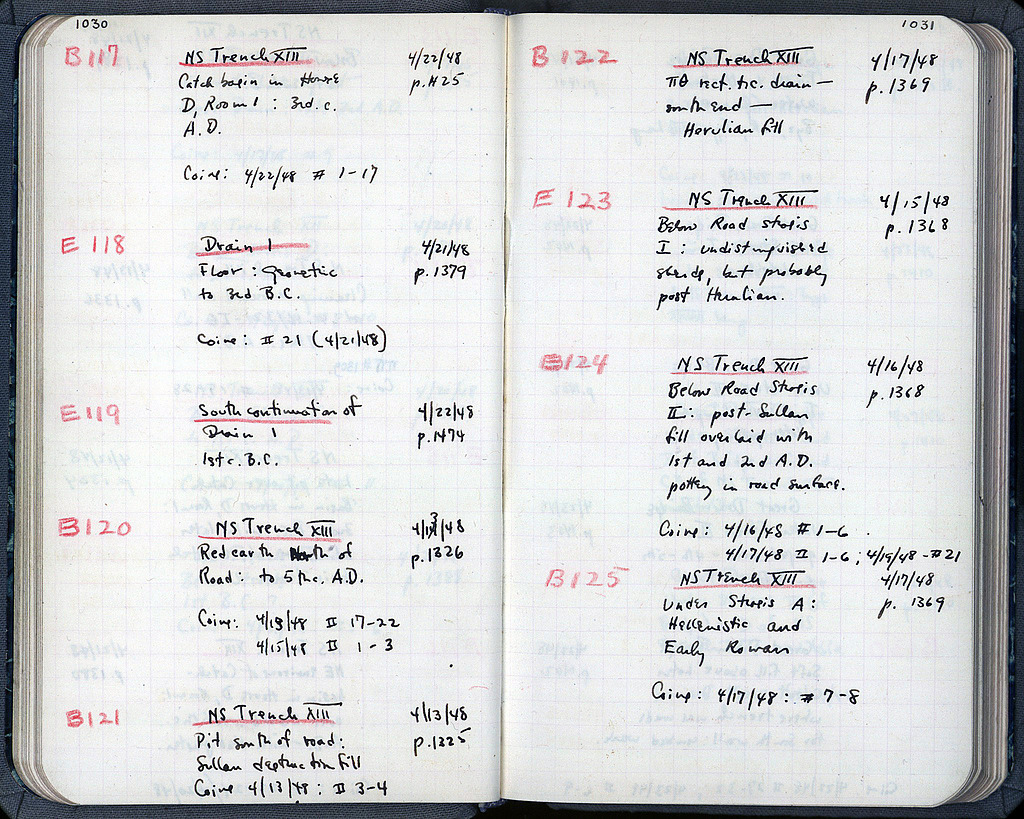 1030
B 117 NS Trench XIII 4/22/48
Catch basin in House p. 1425
D, Room 1 : 3rd. c.
A.D.
Coins: 4/22/48 # 1-17
E 118 Drain 1 4/21/48
Floor : Geometric p. 1379
to 3rd B.C.
Coins: # 21 (4/21/48)
E 119 South continuation of 4/22/48
Drain 1 p. 1474
1st c. B.C.
B 120 NS Trench XIII 4/13/48
Red earth North of p. 1326
Road: to 5th c. A.D.
Coins: 4/13/48 # 17-22
4/15/48 # 1-3
B 121 NS Trench XIII 4/13/48
Pit south of road: p. 1325
Sullan destruction fill
Coins 4/13/48 : # 3-4
1031
B 122 NS Trench XIII 4/17/48
ΠΘ rect. t.c. drain — p. 1369
south end —
Herulian fill
E 123 NS Trench XIII 4/15/48
Below Road Strosis p. 1368
I : undistinguished
sherds, but probably
post Herulian.
B 124 NS Trench XIII 4/16/48
Below Road Strosis p. 1368
II : post-Sullan
fill overlaid with
1st and 2nd A.D.
pottery in road surface.
Coins: 4/16/48 # 1-6
4/17/48 # 1-6 ; 4/19/48 - # 21
B 125 NS Trench XIII 4/17/48
Under Strosis A : p. 1369
Hellenistic and
Early Roman
Coins: 4/17/48 : # 7-8